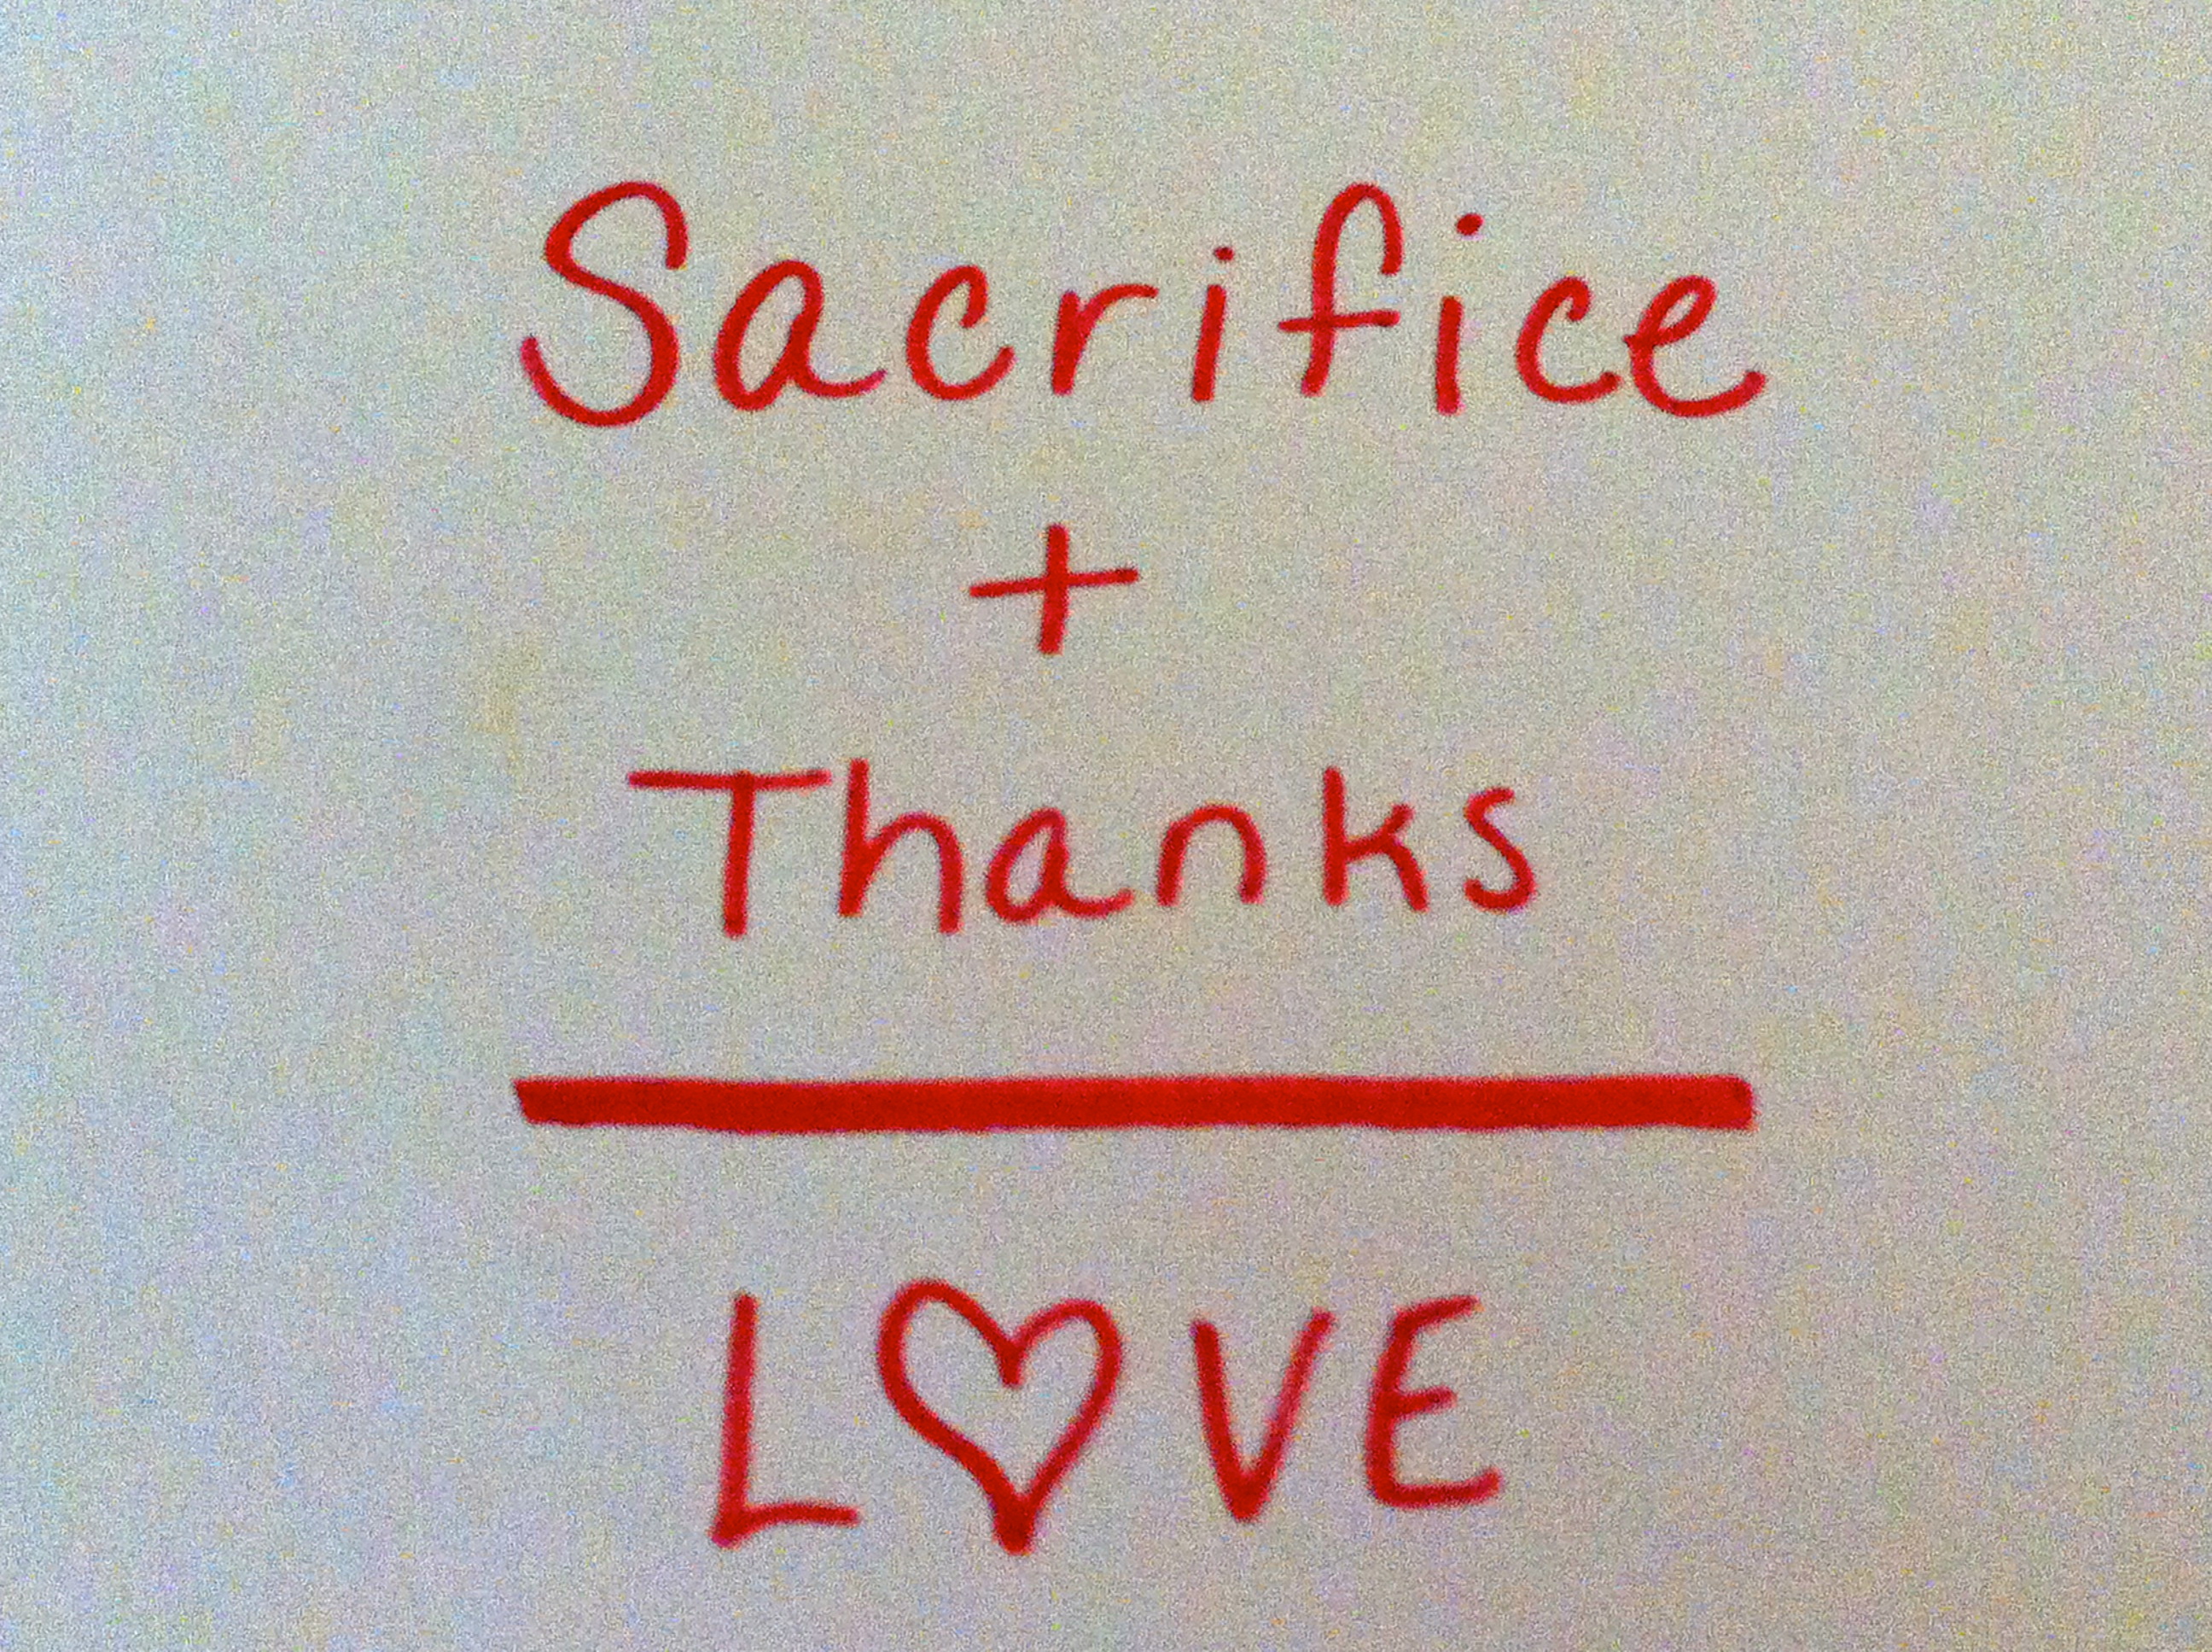 Sacrifice
+
Thanks
L♡VE